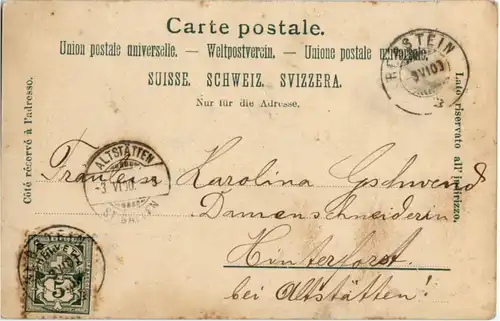 Carte postale.
Union postale universelle. — Weltpostverein. — Unione postale universale.
SUISSE. SCHWEIZ. SVIZZERA.
Nur für die Adresse.
Côté réservé à l'adresse.
Lato riservato all' indirizzo.
REBSTEIN
ALTSTÄTTEN
-3. VI.00.
(ST. GALLEN)
Fräulein Karolina Gschwend
Damenschneiderin
Hinterforst.
bei Altstätten!
HELVETIA
5